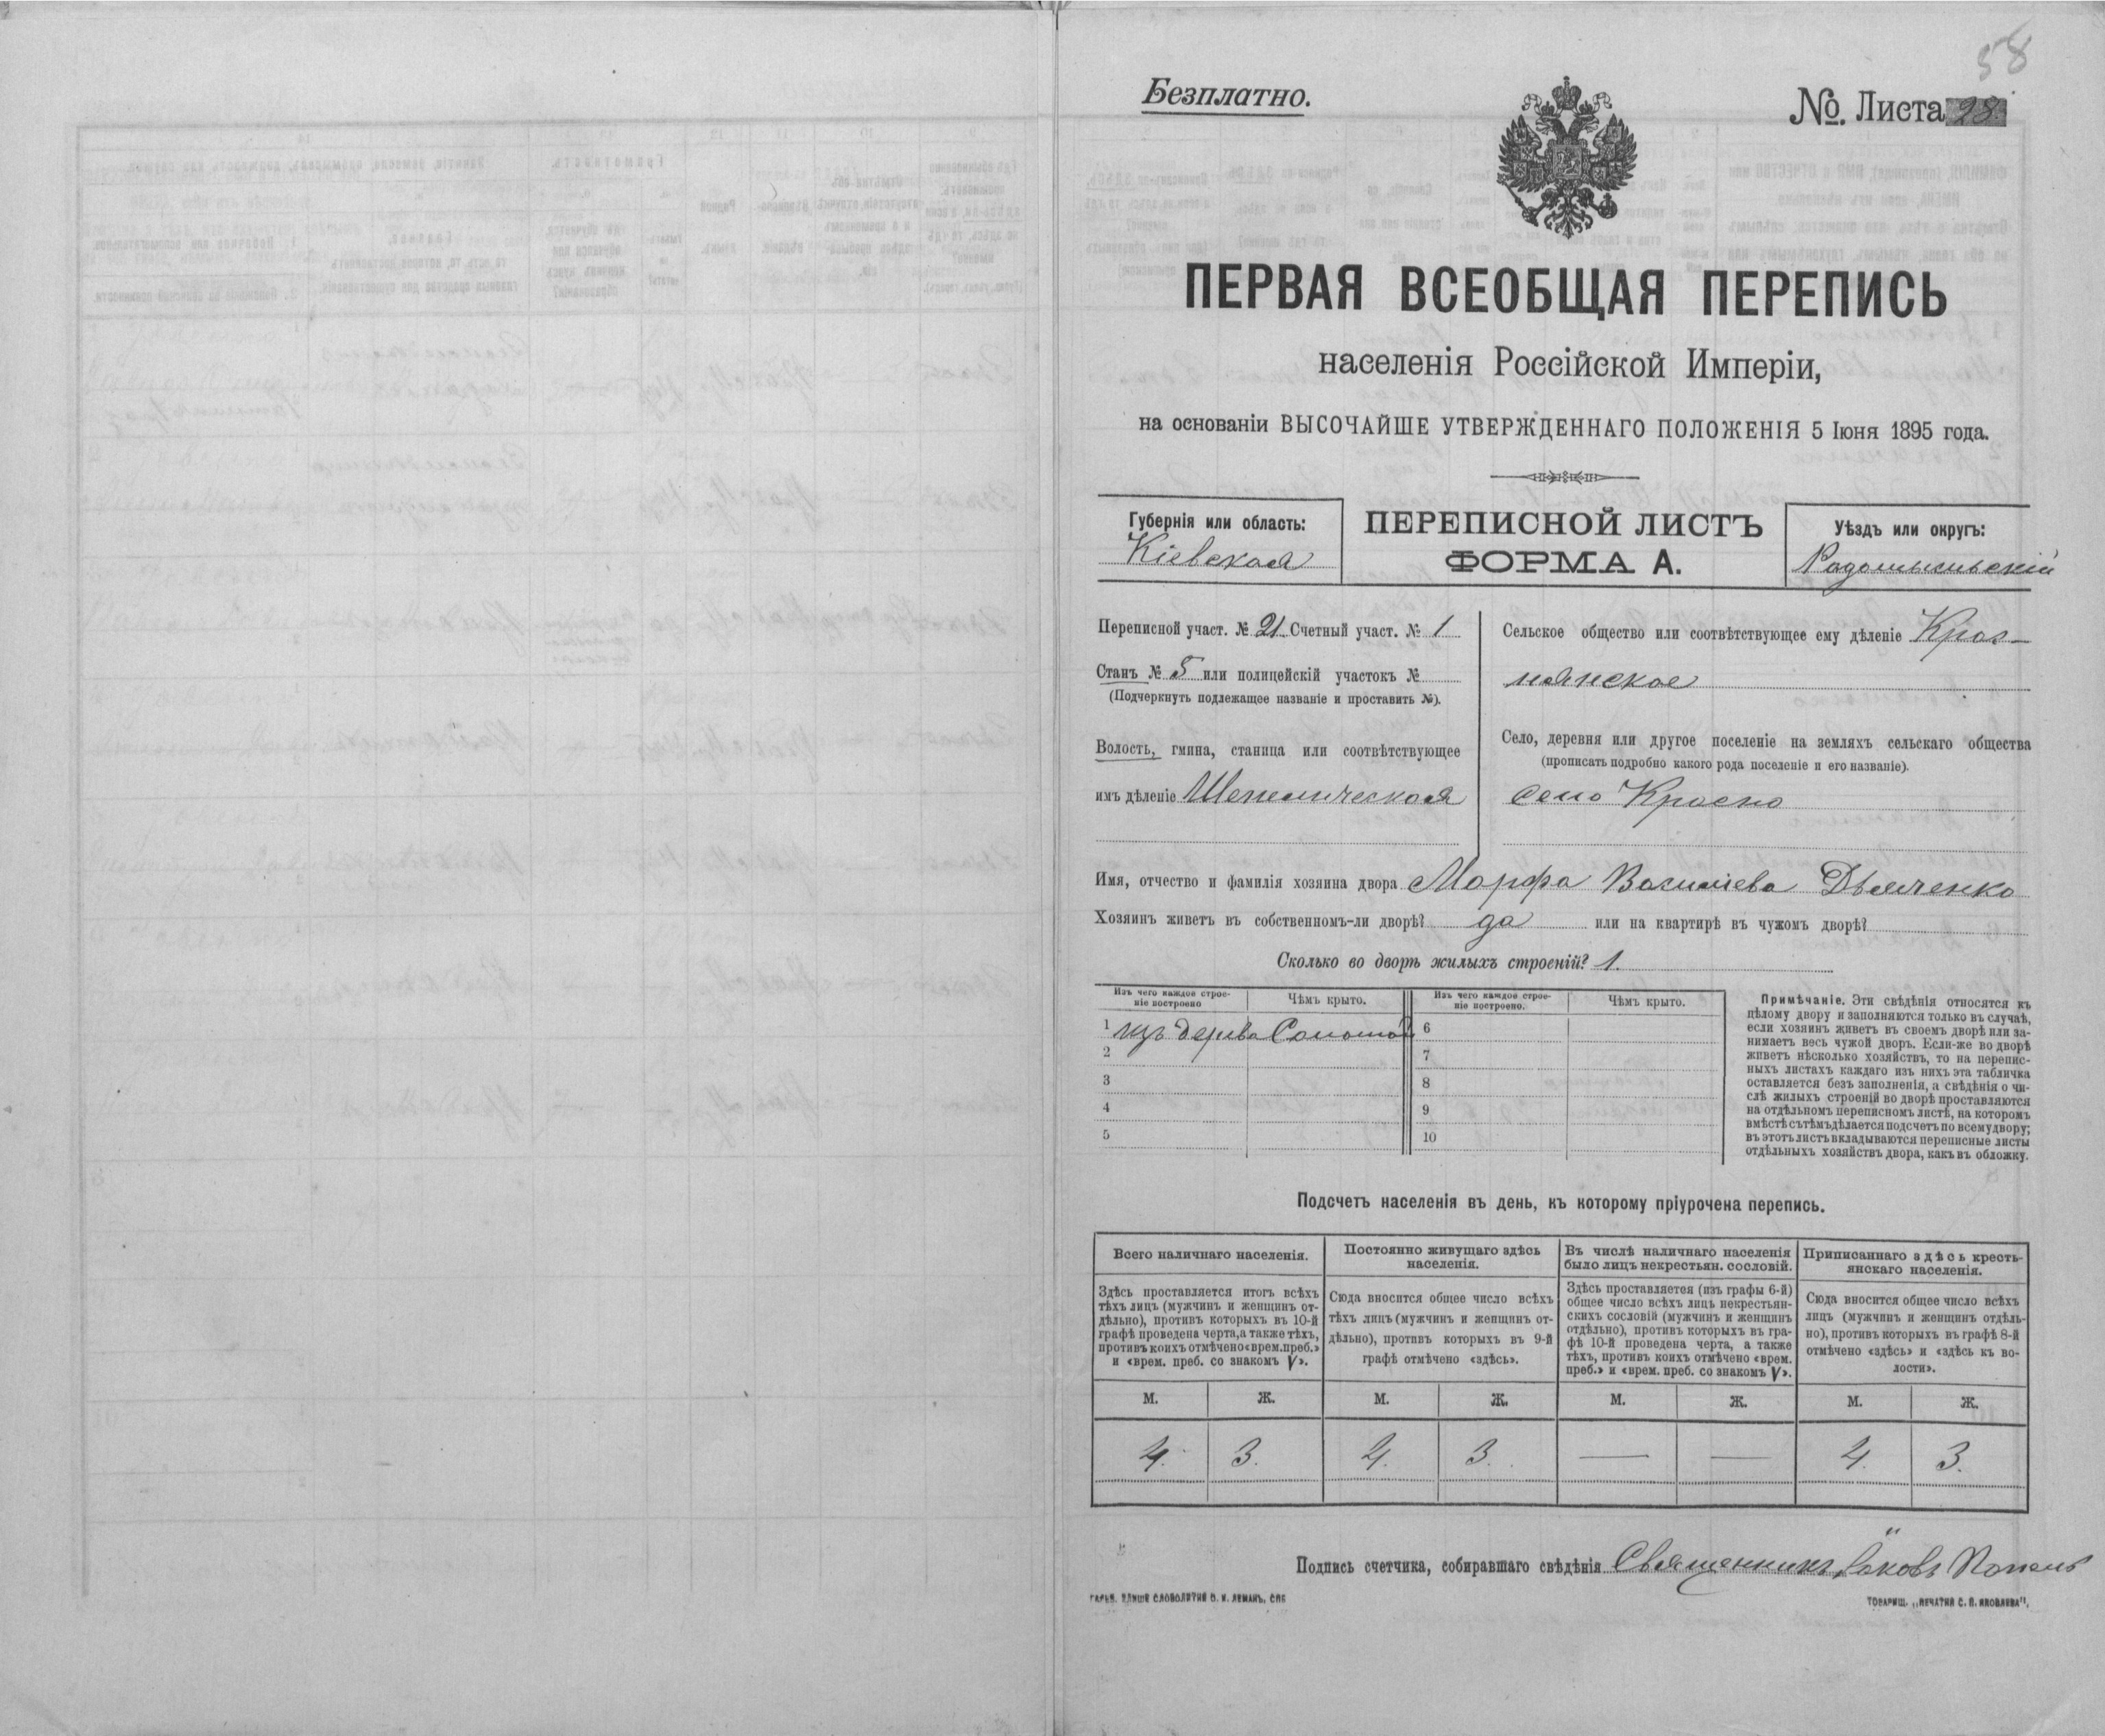 58
Безплатно.
№. Листа 28.
ПЕРВАЯ ВСЕОБЩАЯ ПЕРЕПИСЬ
населенія Россійской Имперіи,
на основаніи ВЫСОЧАЙШЕ УТВЕРЖДЕННАГО ПОЛОЖЕНІЯ 5 Іюня 1895 года.
Губернія или область:
Кіевская
ПЕРЕПИСНОЙ ЛИСТЪ
ФОРМА А.
Уѣздъ или округъ:
Радомысльскій
Переписной участ. № 21. Счетный участ. № 1
Станъ № 5 или полицейскій участокъ №
(Подчеркнуть подлежащее названіе и проставить №).
Волость, гмина, станица или соотвѣтствующее
имъ дѣленіе Шепеличская
Сельское общество или соотвѣтствующее ему дѣленіе Крас-
нянское
Село, деревня или другое поселеніе на земляхъ сельскаго общества
(прописать подробно какого рода поселеніе и его названіе).
село Красно
Имя, отчество и фамилія хозяина двора Марфа Василіева Дьяченко
Хозяинъ живетъ въ собственномъ-ли дворѣ? да или на квартирѣ въ чужомъ дворѣ?
Сколько во дворѣ жилыхъ строеній? 1.
Изъ чего каждое строе-
ніе построено
Чѣмъ крыто.
Изъ чего каждое строе-
ніе построено.
Чѣмъ крыто.
1 изъ дерева Соломой
2
3
4
5
6
7
8
9
10
Примѣчаніе. Эти свѣдѣнія относятся къ
цѣлому двору и заполняются только въ случаѣ,
если хозяинъ живетъ въ своемъ дворѣ или за-
нимаетъ весь чужой дворъ. Если-же во дворѣ
живетъ нѣсколько хозяйствъ, то на перепис-
ныхъ листахъ каждаго изъ нихъ эта табличка
оставляется безъ заполненія, а свѣдѣнія о чи-
слѣ жилыхъ строеній во дворѣ проставляются
на отдѣльномъ переписномъ листѣ, на которомъ
вмѣстѣ съ тѣмъ дѣлается подсчетъ по всему двору;
въ этотъ листъ вкладываются переписные листы
отдѣльныхъ хозяйствъ двора, какъ въ обложку.
Подсчетъ населенія въ день, къ которому пріурочена перепись.
Всего наличнаго населенія.
Здѣсь проставляется итогъ всѣхъ
тѣхъ лицъ (мужчинъ и женщинъ от-
дѣльно), противъ которыхъ въ 10-й
графѣ проведена черта, а также тѣхъ,
противъ коихъ отмѣчено «врем. преб.»
и «врем. преб. со знакомъ V».
Постоянно живущаго здѣсь
населенія.
Сюда вносится общее число всѣхъ
тѣхъ лицъ (мужчинъ и женщинъ от-
дѣльно), противъ которыхъ въ 9-й
графѣ отмѣчено «здѣсь».
Въ числѣ наличнаго населенія
было лицъ некрестьян. сословій.
Здѣсь проставляется (изъ графы 6-й)
общее число всѣхъ лицъ некрестьян-
скихъ сословій (мужчинъ и женщинъ
отдѣльно), противъ которыхъ въ гра-
фѣ 10-й проведена черта, а также
тѣхъ, противъ коихъ отмѣчено «врем.
преб.» и «врем. преб. со знакомъ V».
Приписаннаго здѣсь кресть-
янскаго населенія.
Сюда вносится общее число всѣхъ
лицъ (мужчинъ и женщинъ отдѣль-
но), противъ которыхъ въ графѣ 8-й
отмѣчено «здѣсь» и «здѣсь къ во-
лости».
М. Ж. М. Ж. М. Ж. М. Ж.
4. 3. 4. 3. — — 4. 3.
Подпись счетчика, собиравшаго свѣдѣнія Священникъ Іаковъ
ТОВАРИЩ. „ПЕЧАТНЯ С. П. ЯКОВЛЕВА".